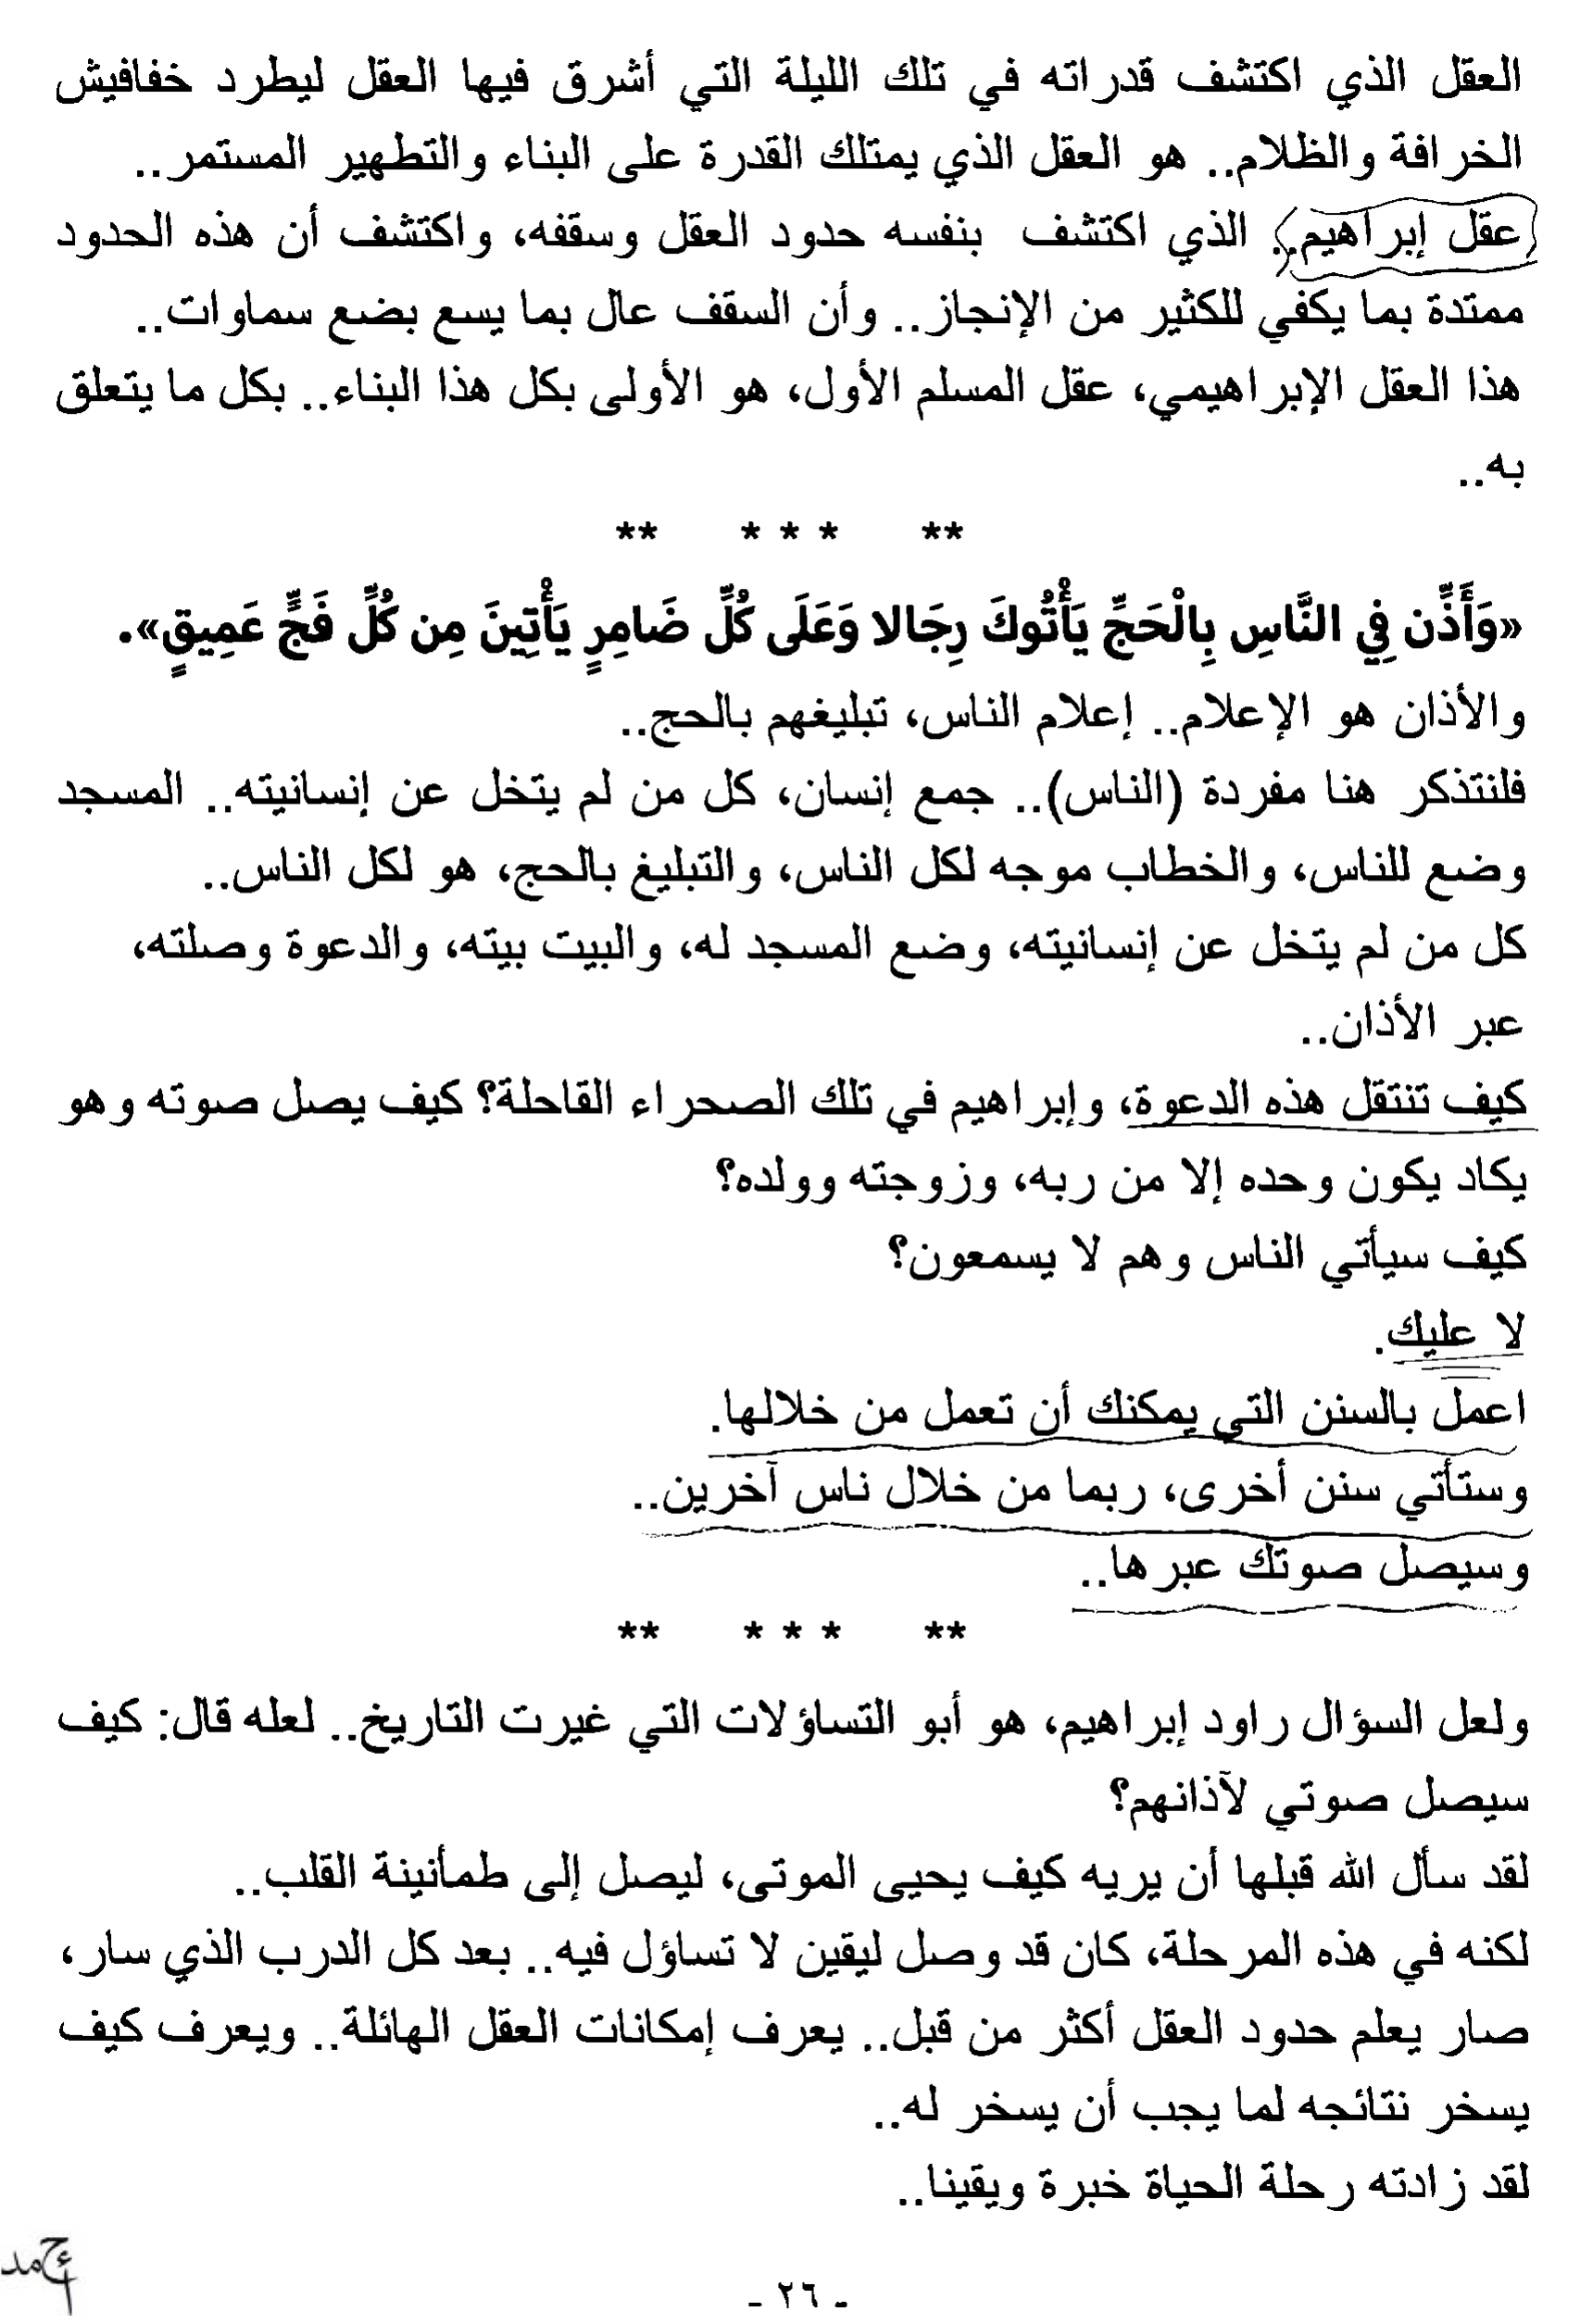 العقل الذي اكتشف قدراته في تلك الليلة التي أشرق فيها العقل ليطرد خفافيش
الخرافة والظلام.. هو العقل الذي يمتلك القدرة على البناء والتطهير المستمر..
عقل إبراهيم.. الذي اكتشف بنفسه حدود العقل وسقفه، واكتشف أن هذه الحدود
ممتدة بما يكفي للكثير من الإنجاز.. وأن السقف عال بما يسع بضع سماوات..
هذا العقل الإبراهيمي، عقل المسلم الأول، هو الأولى بكل هذا البناء.. بكل ما يتعلق
به..
** * * * **
«وَأَذِّن فِي النَّاسِ بِالْحَجِّ يَأْتُوكَ رِجَالا وَعَلَى كُلِّ ضَامِرٍ يَأْتِينَ مِن كُلِّ فَجٍّ عَمِيقٍ».
والأذان هو الإعلام.. إعلام الناس، تبليغهم بالحج..
فلنتذكر هنا مفردة (الناس).. جمع إنسان، كل من لم يتخل عن إنسانيته.. المسجد
وضع للناس، والخطاب موجه لكل الناس، والتبليغ بالحج، هو لكل الناس..
كل من لم يتخل عن إنسانيته، وضع المسجد له، والبيت بيته، والدعوة وصلته،
عبر الأذان..
كيف تنتقل هذه الدعوة، وإبراهيم في تلك الصحراء القاحلة؟ كيف يصل صوته وهو
يكاد يكون وحده إلا من ربه، وزوجته وولده؟
كيف سيأتي الناس وهم لا يسمعون؟
لا عليك.
اعمل بالسنن التي يمكنك أن تعمل من خلالها.
وستأتي سنن أخرى، ربما من خلال ناس آخرين..
وسيصل صوتك عبرها..
** * * * **
ولعل السؤال راود إبراهيم، هو أبو التساؤلات التي غيرت التاريخ.. لعله قال: كيف
سيصل صوتي لآذانهم؟
لقد سأل الله قبلها أن يريه كيف يحيى الموتى، ليصل إلى طمأنينة القلب..
لكنه في هذه المرحلة، كان قد وصل ليقين لا تساؤل فيه.. بعد كل الدرب الذي سار،
صار يعلم حدود العقل أكثر من قبل.. يعرف إمكانات العقل الهائلة.. ويعرف كيف
يسخر نتائجه لما يجب أن يسخر له..
لقد زادته رحلة الحياة خبرة ويقينا..
أحمد
- ٢٦ -